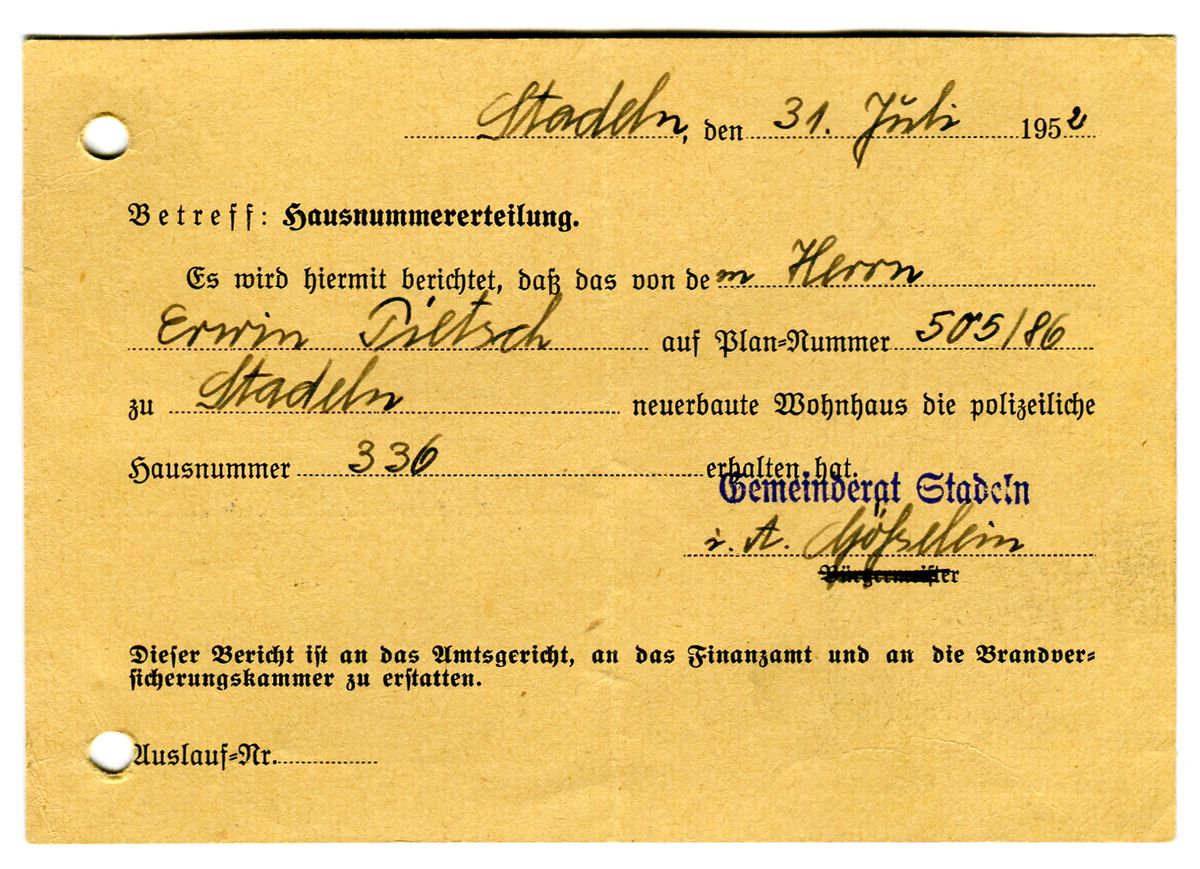 Stadeln, den 31. Juli 1952
Betreff: Hausnummererteilung.
Es wird hiermit berichtet, daß das von dem Herrn
Erwin Pietsch auf Plan-Nummer 505/86
zu Stadeln neuerbaute Wohnhaus die polizeiliche
Hausnummer 336 erhalten hat.
Gemeinderat Stadeln
i. A. Gößelein
Bürgermeister
Dieser Bericht ist an das Amtsgericht, an das Finanzamt und an die Brandver-
sicherungskammer zu erstatten.
Auslauf-Nr.